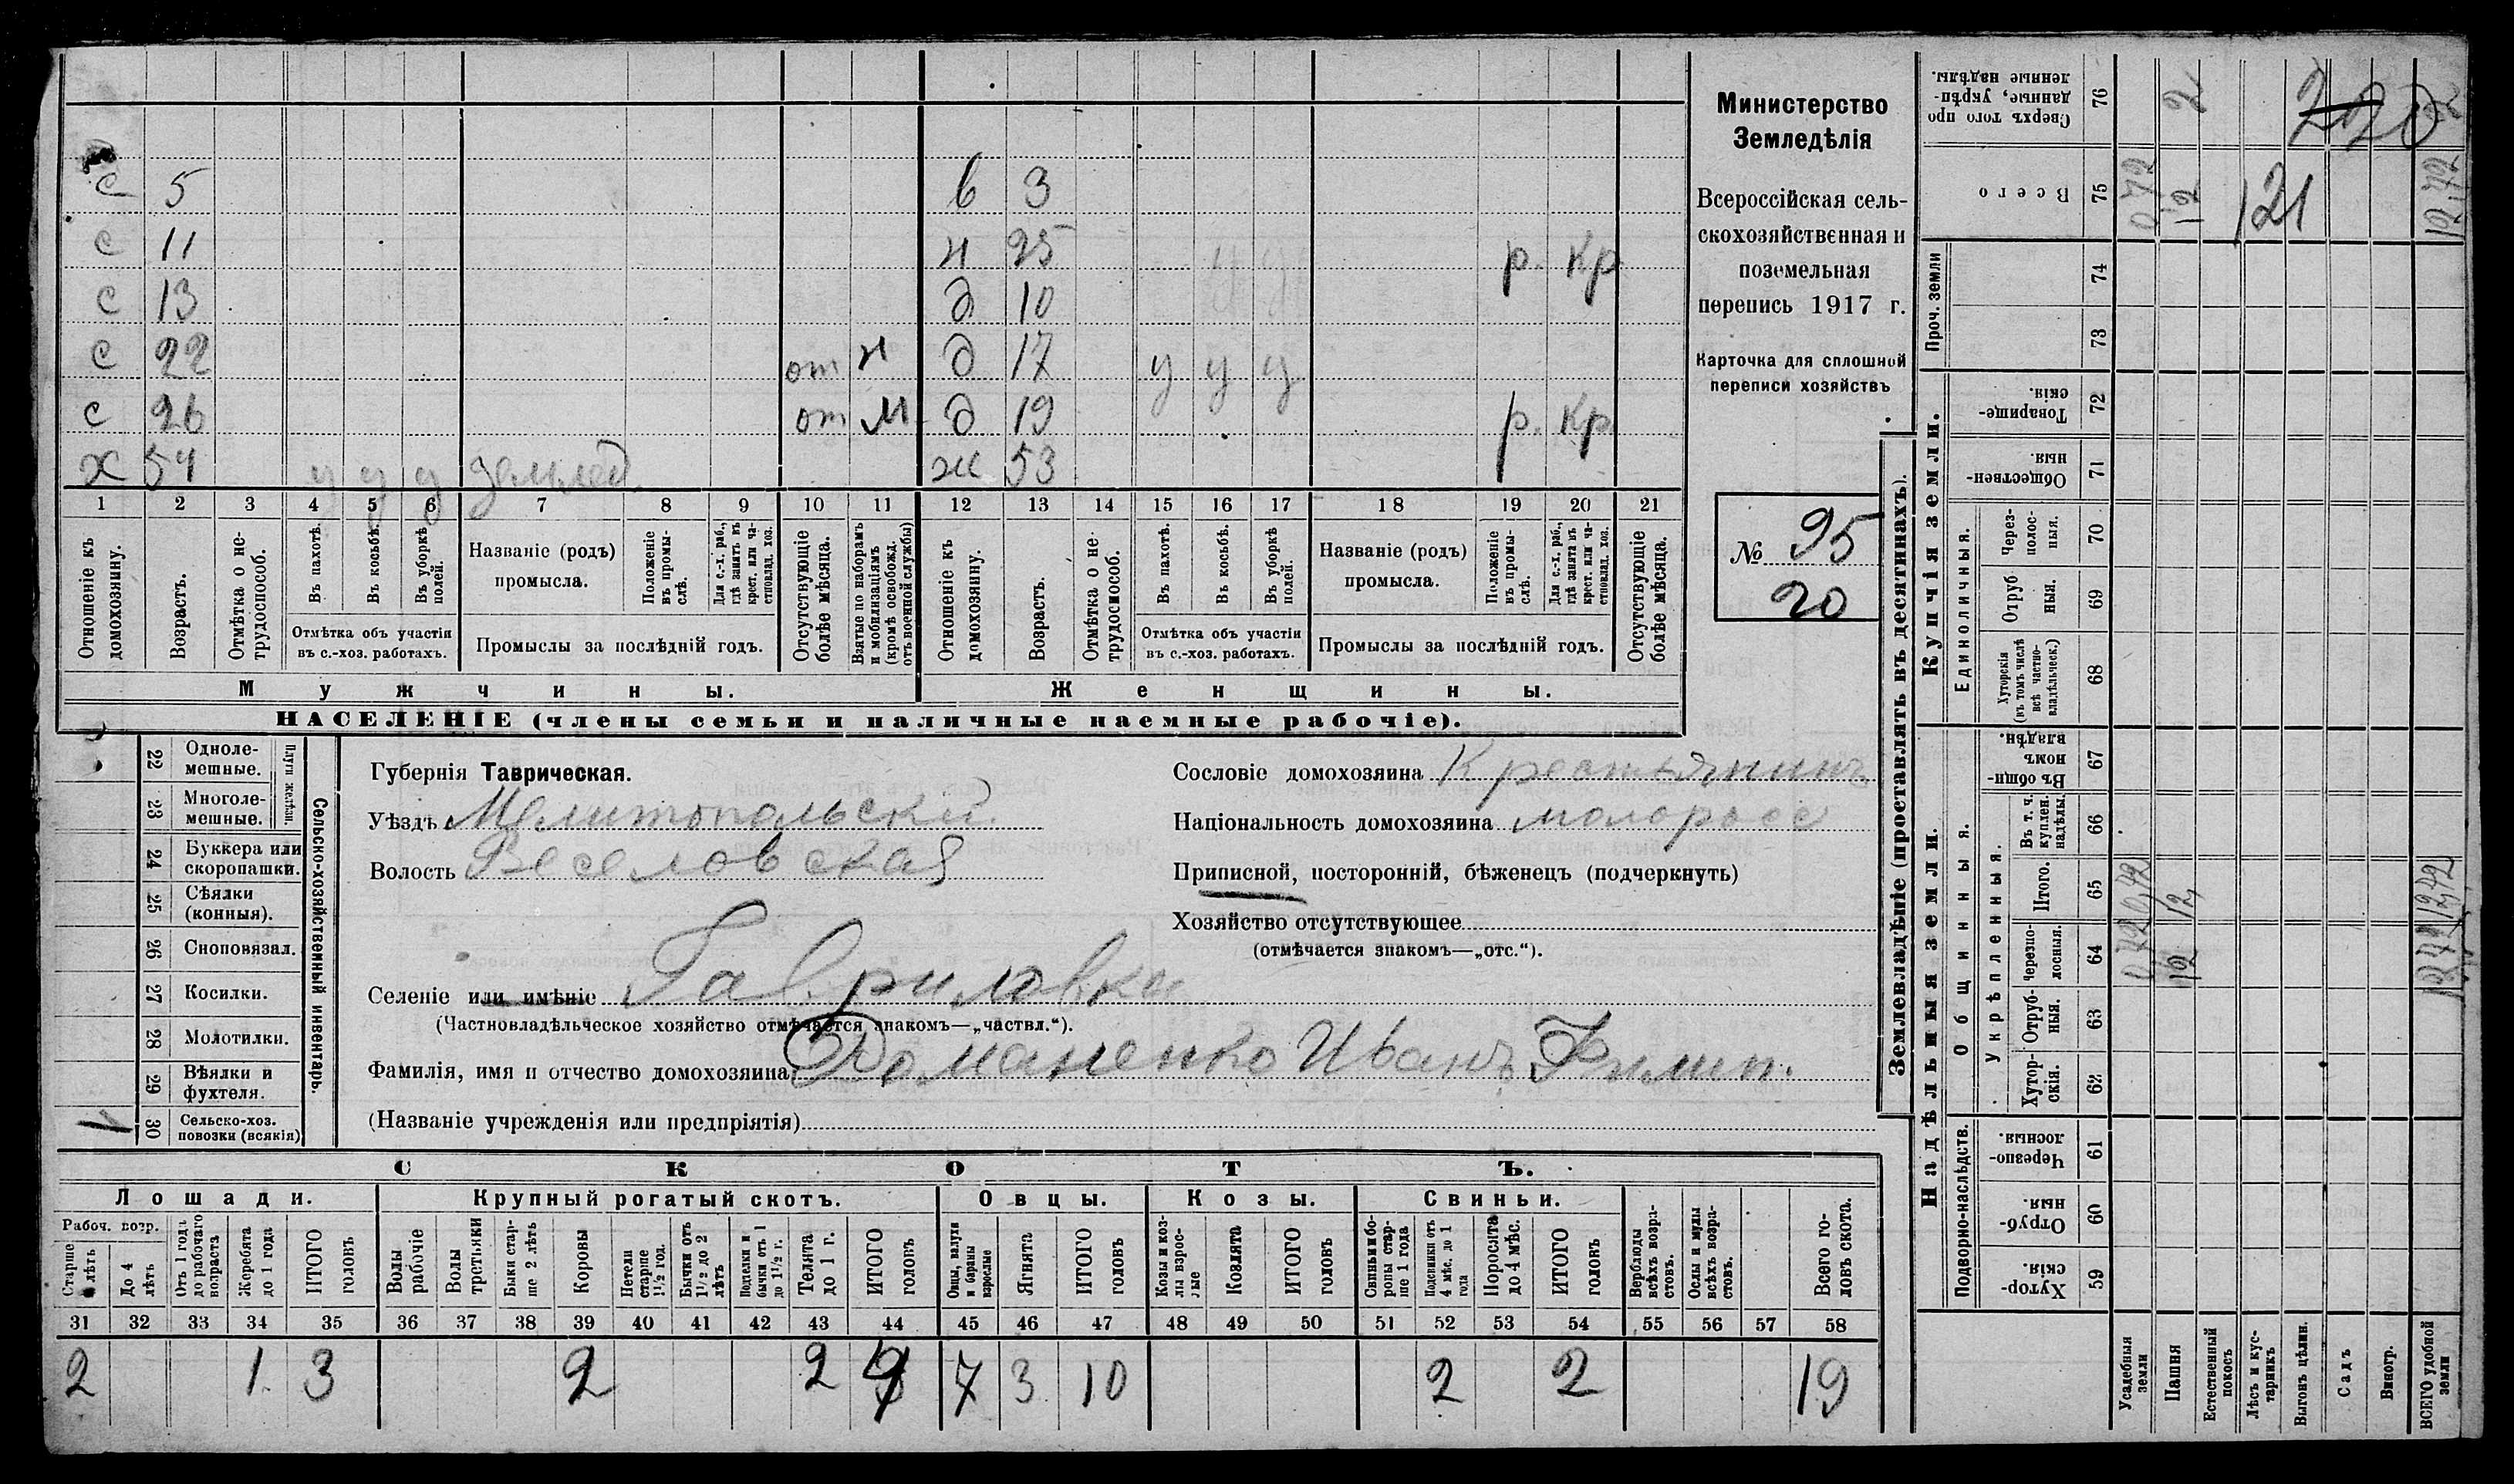 с 5 в 3
с 11 н 25 у у р. кр
с 13 д 10
с 22 от н д 17 у у у
с 26 от м д 19 р. кр
х 54 у у у землед. ж 53
1 2 3 4 5 6 7 8 9 10 11 12 13 14 15 16 17 18 19 20 21
Отношеніе къ домохозяину.
Возрастъ.
Отмѣтка о не-трудоспособ.
Въ пахотѣ.
Въ косьбѣ.
Въ уборкѣ полей.
Отмѣтка объ участіи въ с.-хоз. работахъ.
Названіе (родъ) промысла.
Положеніе въ промы-слѣ.
Для с.-х. раб., гдѣ занятъ въ крест. или ча-стновлад. хоз.
Промыслы за послѣдній годъ.
Отсутствующіе болѣе мѣсяца.
Взятые по наборамъ и мобилизаціямъ (кромѣ освобожд. отъ военной службы)
Отношеніе къ домохозяину.
Возрастъ.
Отмѣтка о не-трудоспособ.
Въ пахотѣ.
Въ косьбѣ.
Въ уборкѣ полей.
Отмѣтка объ участіи въ с.-хоз. работахъ.
Названіе (родъ) промысла.
Положеніе въ промы-слѣ.
Для с.-х. раб., гдѣ занята въ крест. или ча-стновлад. хоз.
Промыслы за послѣдній годъ.
Отсутствующіе болѣе мѣсяца.
Мужчины. Женщины.
НАСЕЛЕНІЕ (члены семьи и наличные наемные рабочіе).
Министерство
Земледѣлія
Всероссійская сель-
скохозяйственная и
поземельная
перепись 1917 г.
Карточка для сплошной
переписи хозяйствъ
№ 95
20
22 Однолемешные.
23 Многолемешные.
Плуги желѣзн.
24 Буккера или скоропашки.
25 Сѣялки (конныя).
26 Сноповязал.
27 Косилки.
28 Молотилки.
29 Вѣялки и фухтеля.
30 Сельско-хоз. повозки (всякія) 1
Сельско-хозяйственный инвентарь.
Губернія Таврическая.
Уѣздъ Мелитопольскій
Волость Веселовская
Селеніе или имѣніе Гавриловка
(Частновладѣльческое хозяйство отмѣчается знакомъ—„частвл.“).
Фамилія, имя и отчество домохозяина: Романенко Иванъ Филип.
(Названіе учрежденія или предпріятія)
Сословіе домохозяина Крестьянинъ
Національность домохозяина молоросс
Приписной, посторонній, бѣженецъ (подчеркнуть)
Хозяйство отсутствующее
(отмѣчается знакомъ—„отс.“).
СКОТЪ.
Лошади. Крупный рогатый скотъ. Овцы. Козы. Свиньи.
Рабоч. возр.
Старше 4 лѣтъ
До 4 лѣтъ
Отъ 1 года до рабочаго возраста
Жеребята до 1 года
ИТОГО головъ
Волы рабочіе
Волы третьяки
Быки стар-ше 2 лѣтъ
Коровы
Нетели старше 1½ год.
Бычки отъ 1½ до 2 лѣтъ
Подтелки и бычки отъ 1 до 1½ г.
Телята до 1 г.
ИТОГО головъ
Овцы, валухи и бараны взрослые
Ягнята
ИТОГО головъ
Козы и коз-лы взрос-лые
Козлята
ИТОГО головъ
Свиньи и бо-ровы стар-ше 1 года
Подсвинки отъ 4 мѣс. до 1 года
Поросята до 4 мѣс.
ИТОГО головъ
Верблюды всѣхъ возра-стовъ.
Ослы и мулы всѣхъ возра-стовъ.
Всего го-ловъ скота.
31 32 33 34 35 36 37 38 39 40 41 42 43 44 45 46 47 48 49 50 51 52 53 54 55 56 57 58
2 1 3 2 2 4 7 3 10 2 2 19
Землевладѣніе (проставлять въ десятинахъ).
Надѣльныя земли. Купчія земли. Проч. земли
Подворно-наслѣдств.
Общинныя.
Укрѣпленныя.
Единоличныя.
59 Хутор-скія.
60 Отруб-ныя
61 Черезпо-лосныя.
62 Хутор-скія.
63 Отруб-ныя.
64 Черезпо-лосныя. 0,72 12 12,72
65 Итого. 0,72 12, 12,72
66 Въ т. ч. куплен. надѣлы.
67 Въ общи-номъ владѣн.
68 Хуторскія (въ томъ числѣ всѣ частно-владѣльческ.)
69 Отруб-ныя.
70 Через-полос-ныя.
71 Обществен-ныя.
72 Товарище-скія.
73
74
75 Всего 0,72 12 121 12,72
76 Сверхъ того про-данные, укрѣп-ленные надѣлы. 2 2
Усадебныя земли
Пашня
Естественный покосъ
Лѣсъ и кус-тарникъ
Выгонъ цѣлин.
Садъ
Виногр.
ВСЕГО удобной земли